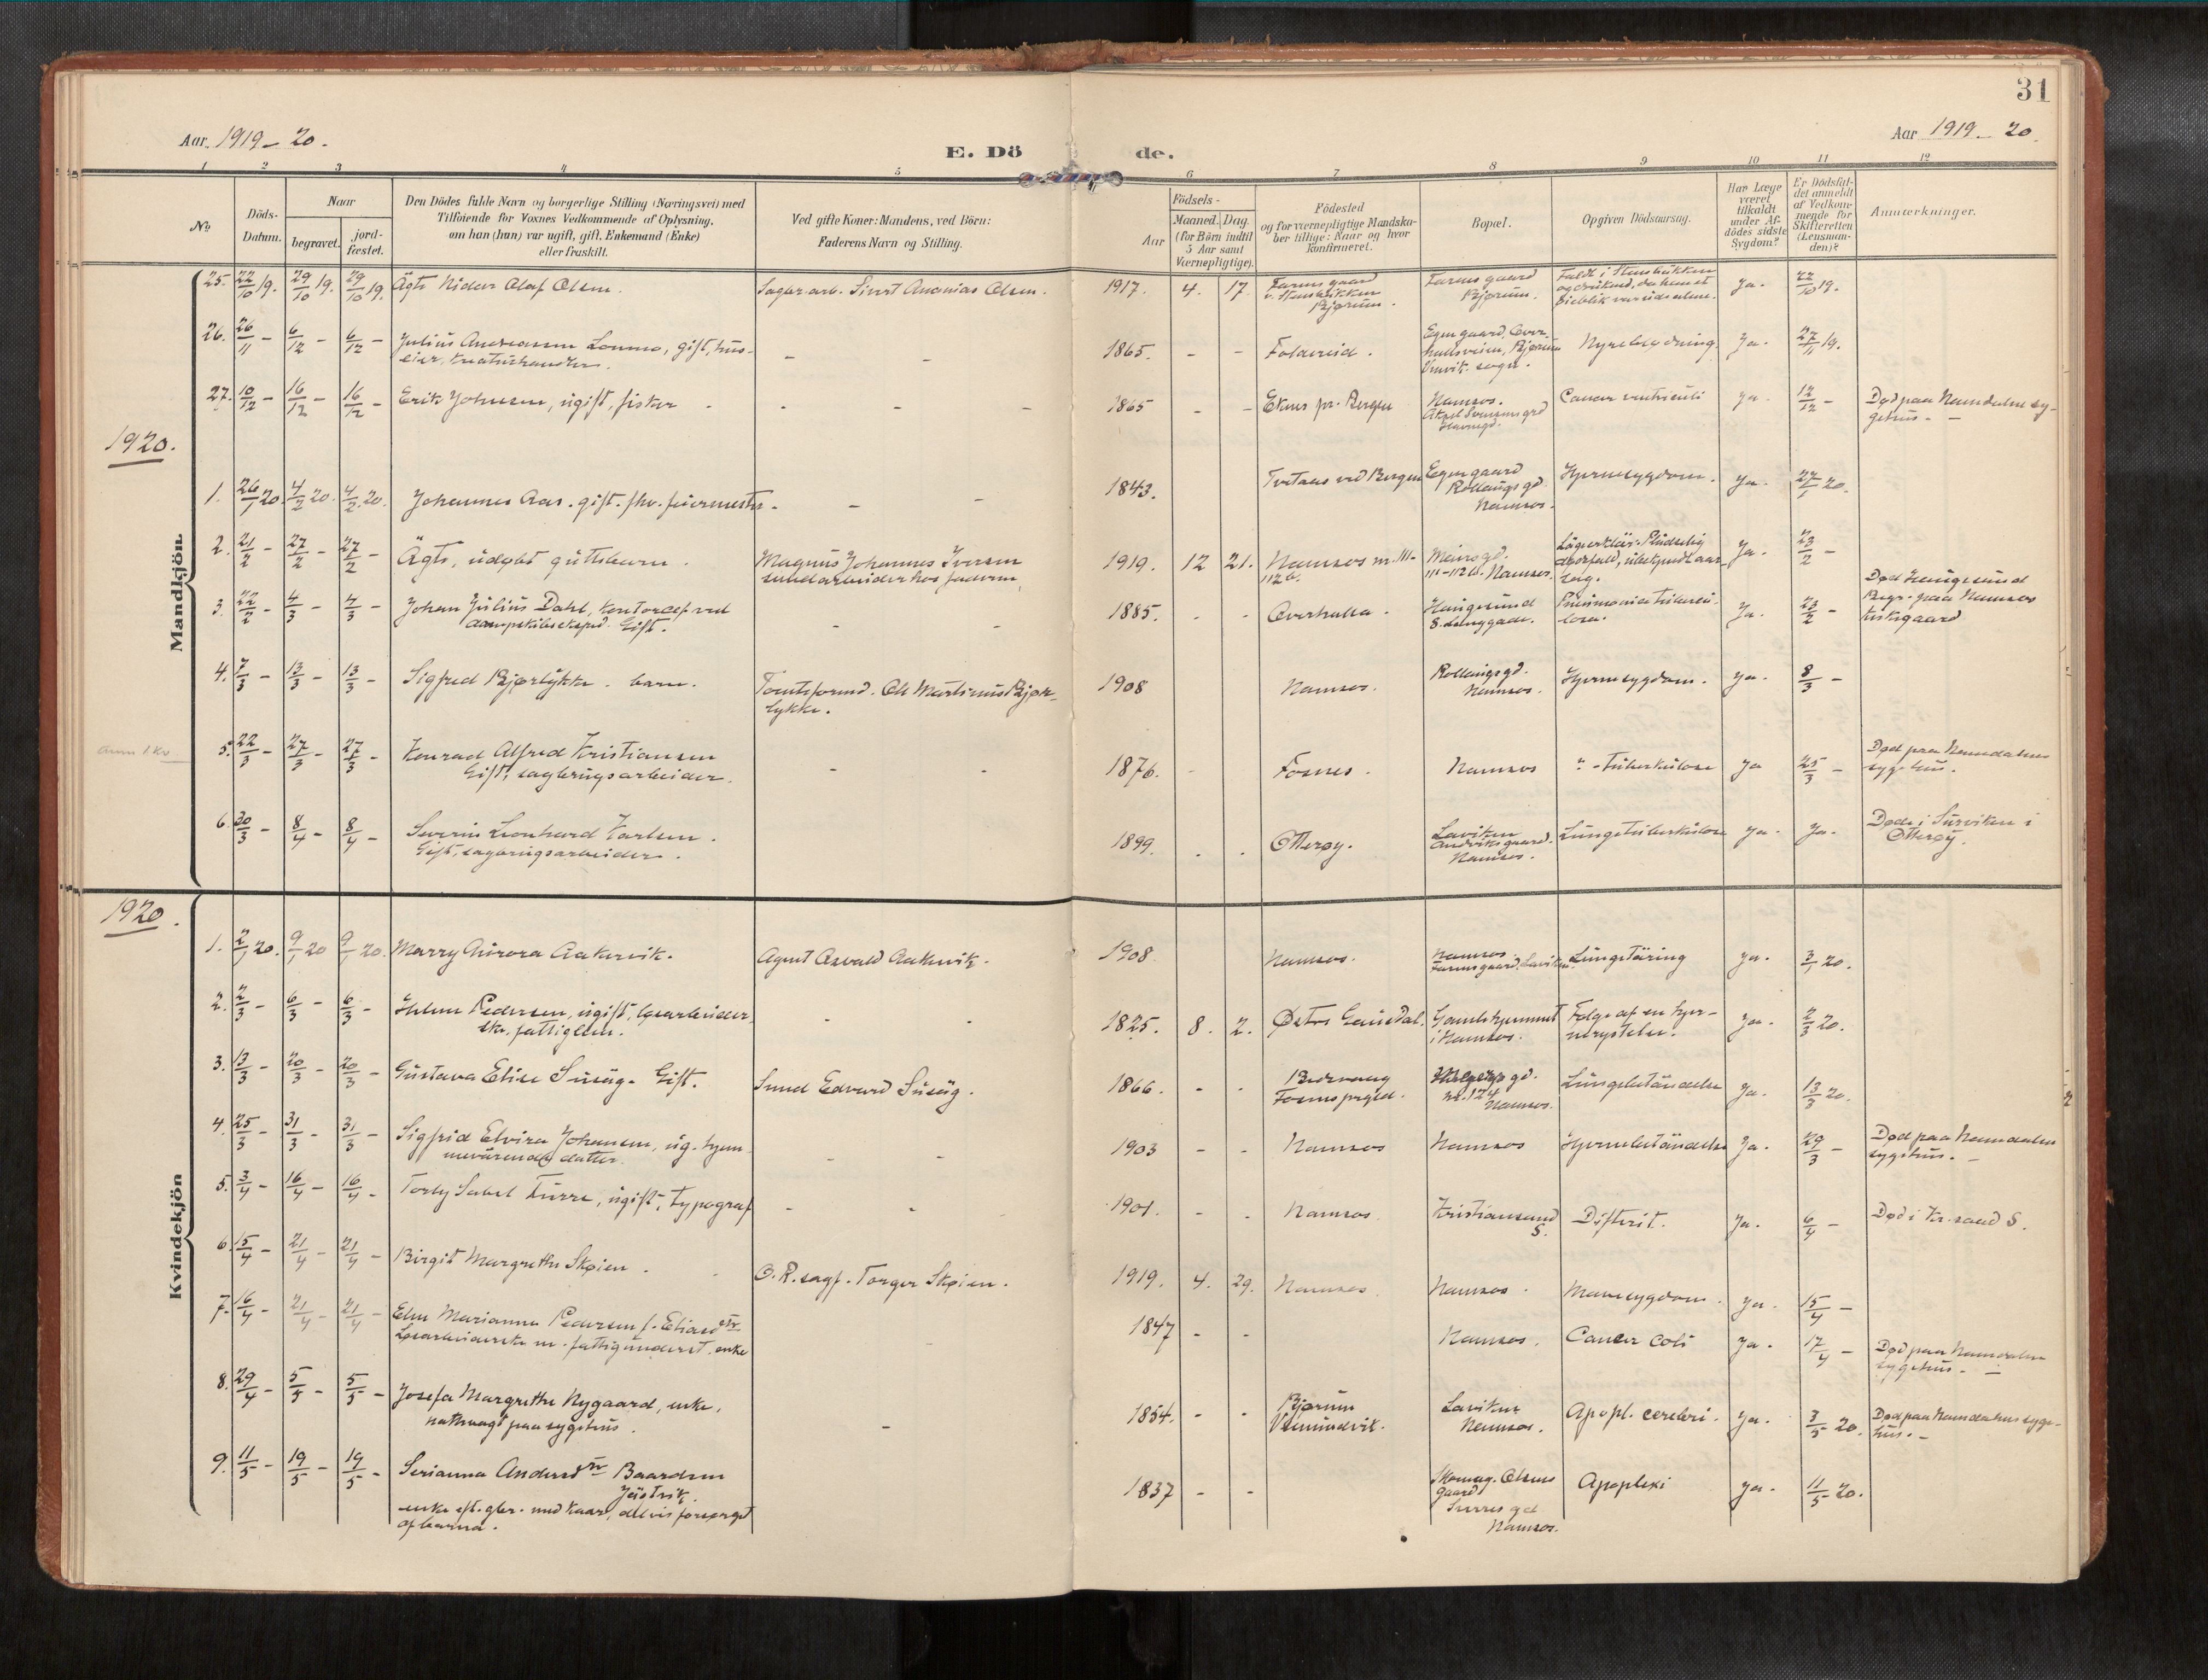 31
Aar 1919 - 20.
Aar 1919 - 20.
E. Dö de.
1 2 3 4 5 6 7 8 9 10 11 12
No
Döds-Datum.
Naar
begravet.
jord-fæstet.
Den Dödes fulde Navn og borgerlige Stilling (Næringsvei) med
Tilföiende for Voxnes Vedkommende af Oplysning,
om han (hun) var ugift, gift, Enkemand (Enke)
eller fraskilt.
Ved gifte Koner: Mandens, ved Börn:
Faderens Navn og Stilling.
Födsels-
Aar
Maaned. Dag.
(for Börn indtil
5 Aar samt
Værnepligtige).
Födested
og for værnepligtige Mandska-
ber tillige: Naar og hvor
konfirmeret.
Bopæl.
Opgiven Dödsaarsag.
Har Læge
været
tilkaldt
under Af-
dödes sidste
Sygdom?
Er Dödsfal-
det anmeldt
af Vedkom-
mende for
Skifteretten
(Lensman-
den)?
Anmærkninger.
Mandkjön.
25. 22/10 19. 29/10 19. 29/10 19. Ägte Nidar Olaf Olsen. Sagbr.arb. Sivert Ananias Olsen. 1917. 4. 17. Farmsgaard
v. Stenbukken
Bjørum. Farmsgaard
Bjørum. Faldt i Stenbukken
og druknet, da han et
øieblik var ude alene. Ja. 22/10 19.
26. 26/11 - 6/12 - 6/12 - Julius Andreassen Lommo, gift, hus-
eier, kreaturhandler. - - 1865. - - Foldereid. Egen gaard, Over-
hallsveien, Bjørum
Vemvik sogn. Nyreblødning. Ja. 27/11 19.
27. 10/12 - 16/12 - 16/12 - Erik Johnsen, ugift, fisker - - - 1865 - - Eknes pr. Bergen Namsos.
Havnegd. Cancer ventriculi ja. 12/12 - Død paa Namdalens sy-
gehus. -
1920.
1. 26/1 20. 4/2 20. 4/2 20. Johannes Aas. gift. fhv. feiermester. - - 1843. Tvetaas ved Bergen Egen gaard
Namsos. Hjernesygdom. Ja. 27/1 20.
2. 21/2 - 27/2 - 27/2 - Ägte, udøbt guttebarn. Magnus Johannes Iversen
1919. 12 21. Namsos nr. 111-
112 b. 111-112 b. Namsos. Pludselig
dødsfald, ubekjendt aar-
sag. Ja. 23/2 -
3. 22/2 - 4/3 - 4/3 - Johan Julius Dahl, kontorchef ved
dampskibseksped. Gift. - - 1885. - - Overhalla. Haugesund
Pneumonia tubercu-
losa. Ja. 23/2 - Død Haugesund
Begr. paa Namsos
kirkegaard
4. 7/3 - 13/3 - 13/3 - Sigfred Bjørlykke. barn. Tomteformd. Ole Martinus Bjør-
lykke. 1908 Namsos. Namsos. Hjernesygdom. ja. 8/3 -
5. 22/3 - 27/3 - 27/3 - Konrad Alfred Kristiansen
Gift, sagbrugsarbeider. - - 1876. - Fosnes. Namsos "-tuberkulose ja 25/3 - Død paa Namdalens
sygehus.
6. 30/3 - 8/4 - 8/4 - Severin Leonhard Karlsen.
Gift, sagbrugsarbeider. 1899. . . Otterøy. Laviken
Namsos. Lungetuberkulose ja. Ja. Døde i Surviken i
Otterøy.
Kvindekjön
1920.
1. 2/1 20. 9/1 20 9/1 20. Marry Aurora Aakervik. Agent Osvald Aakervik. 1908 Namsos. Namsos
Farmsgaard, Laviken. Lungetäring ja. 3/1 20.
2. 2/3 - 6/3 - 6/3 - Helene Pedersen, ugift, løsarbeider-
ske, fattiglem. - - 1825. 8. 2. Østre Gausdal. Gamlehjemmet
i Namsos. Følge af en hjer-
nerystelse. ja. 2/3 20.
3. 13/3 - 20/3 - 20/3 - Gustava Elise Susäg. Gift. Smed Edvard Susäg. 1866 - -
Fosnes prgld. nr. 124
Namsos. Lungebetändelse ja. 13/3 20.
4. 25/3 - 31/3 - 31/3 - Sigfrid Elvira Johansen, ug. hjem-
meværende datter. - - 1903 - - Namsos Namsos Hjernebetändelse Ja. 29/3 - Død paa Namdalens
sygehus. -
5. 3/4 - 16/4 - 16/4 - Torly Sabel Furre, ugift, typograf - - 1901. - - Namsos. Kristiansand
S. Difterit. Ja. 6/4 - Død i Kr.sand S.
6. 15/4 - 21/4 - 21/4 - Birgit Margrethe Skøien. O.R.sagf. Torger Skøien. 1919. 4. 29. Namsos Namsos. Mavesygdom. Ja. 15/4 -
7. 16/4 - 21/4 - 21/4 - Elen Marianna Pedersen f. Eliasdtr
Løsarbeiderske m. fattigunderst. enke 1847 - - Namsos. Cancer coli Ja. 17/4 - Død paa Namdalens
sygehus. -
8. 29/4 - 5/5 - 5/5 - Josefa Margrethe Nygaard, enke,
nattevagt paa sygehus. - 1854. - - Bjørum
Vemundvik. Laviken
Namsos. Apopl. cerebri. ja. 3/5 20. Død paa Namdalens syge-
hus. -
9. 11/5 - 19/5 - 19/5 - Serianna Andersdtr Baardsen
enke eft. gbr. med kaar, delvis forsørget
af barna. 1837 - - Skomag. Olsens
gaard
Sverres gd
Namsos. Apoplexi ja. 11/5 20.